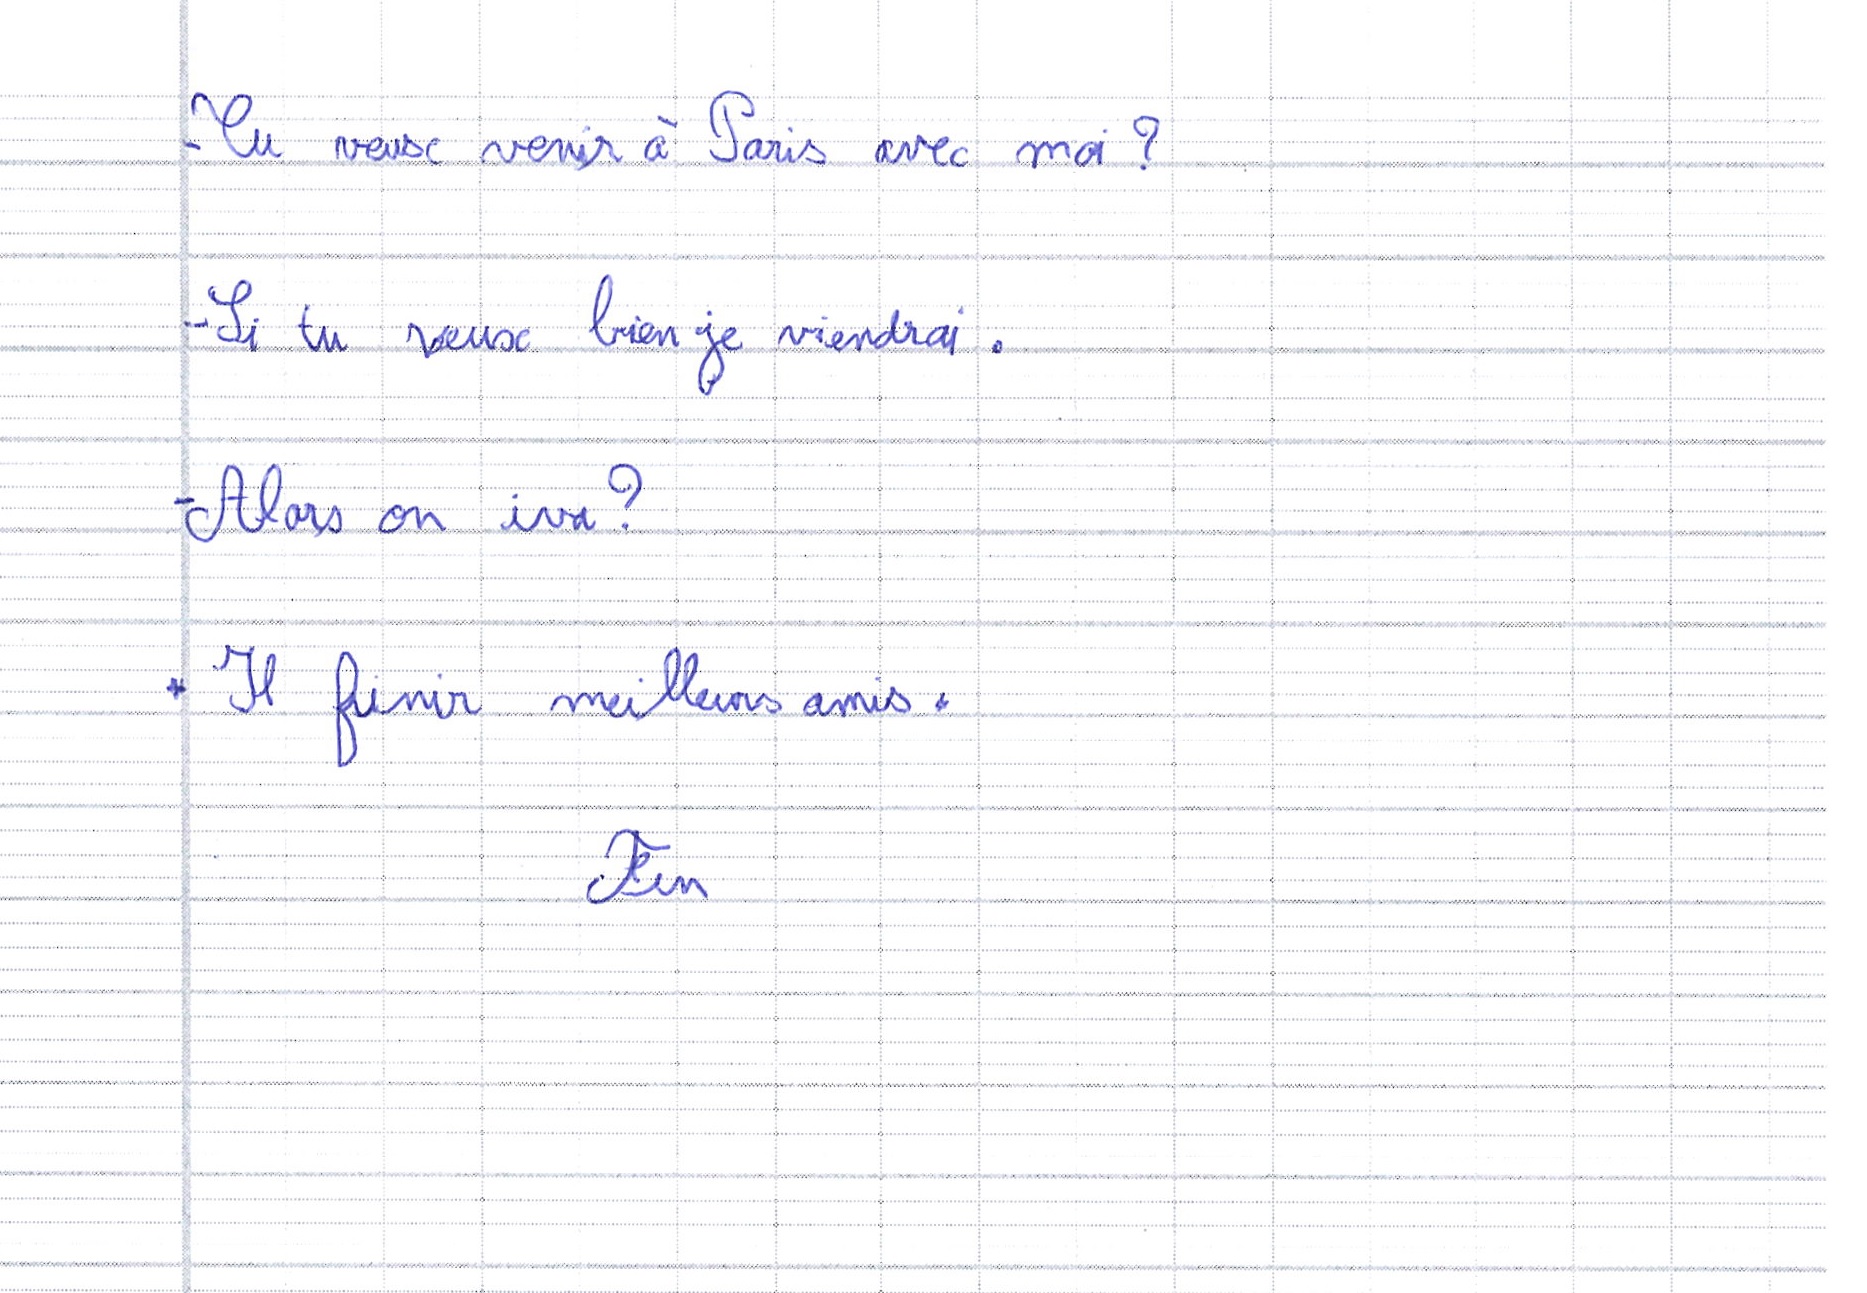 -Tu veux venir à Paris avec moi ?
-Si tu veux bien je viendrai.
-Alors on iva ?
* Il finir meilleurs amis.
Fin